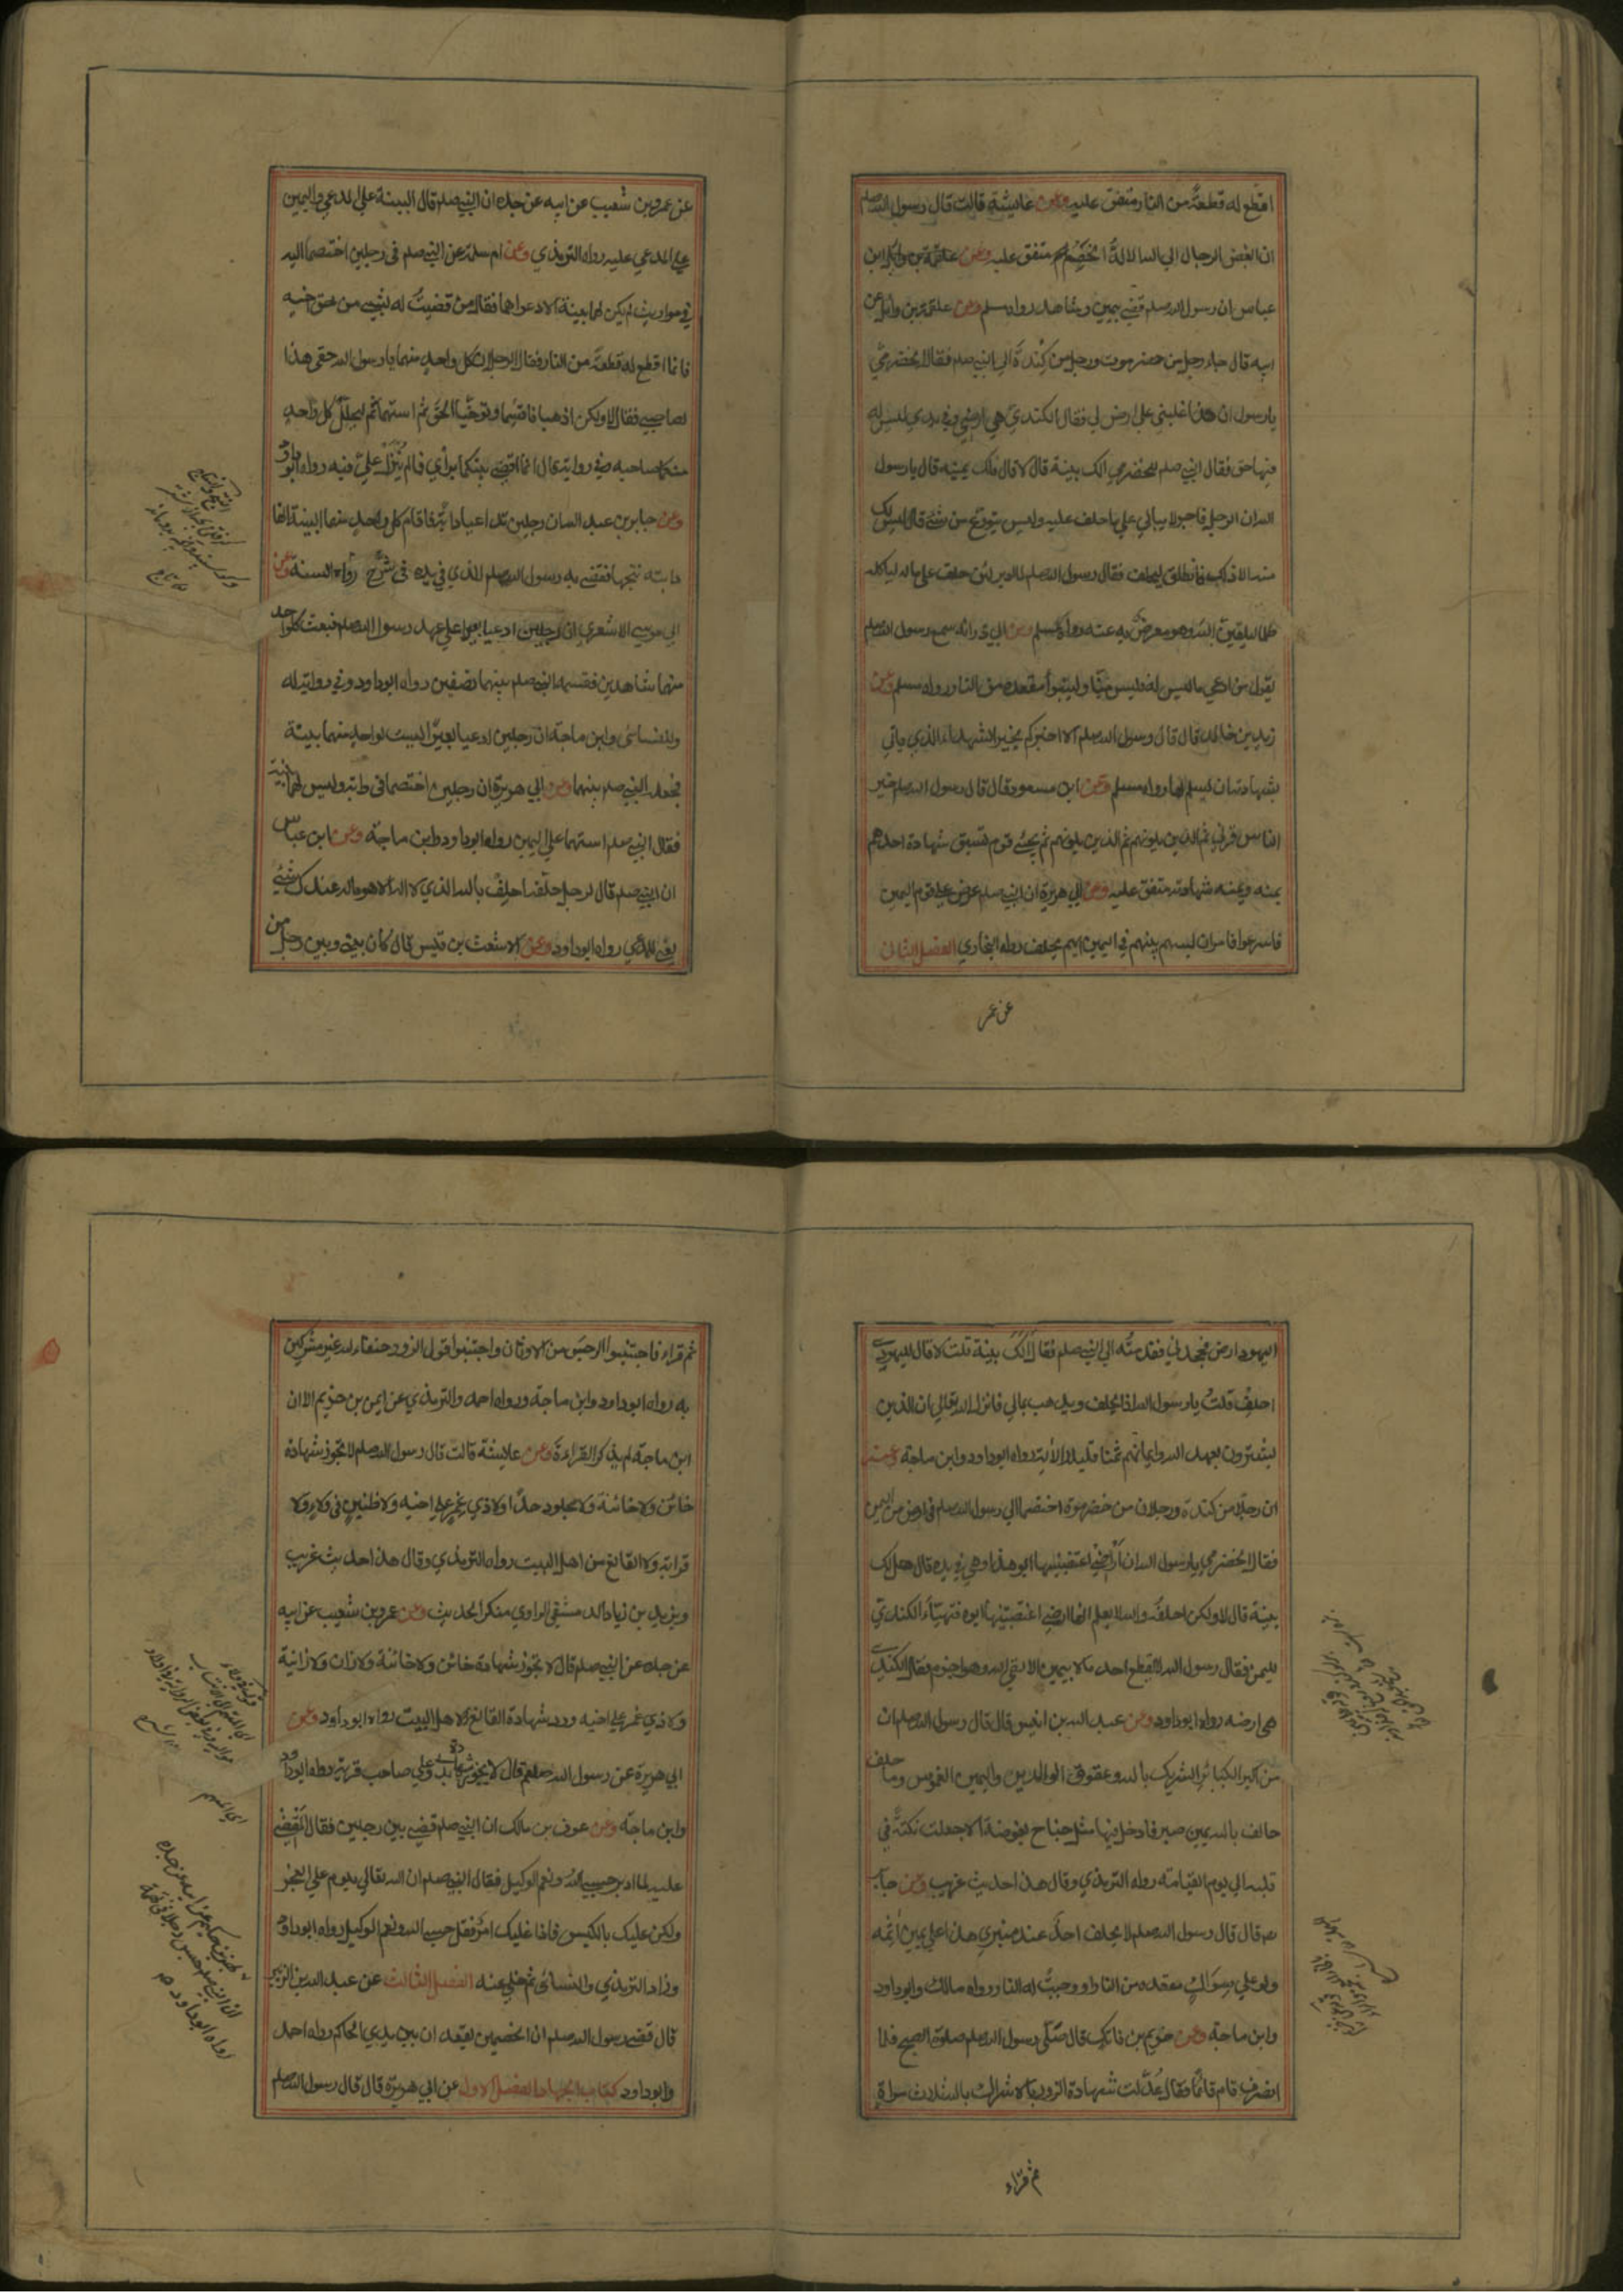 اقطع له قطعة من النار متفق عليه وعن عايشة قالت قال رسول الله صلم
ان ابغض الرجال الي الله الالدُّ الخَصِمُ متفق عليه وعن ابن
عباس ان رسول الله صلم قضي بيمين وشاهد رواه مسلم وعن علقمة بن وائل عن
ابيه قال جاء رجل من حضرموت ورجل من كِنْدَة الي النبي صلم فقال الحضرمي
يا رسول الله ان هذا غلبني علي ارض لي فقال الكندي هي ارضي وفي يدي ليس له
فيها حق فقال النبي صلم للحضرمي الك بينة قال لا قال فلك يمينه قال يا رسول
الله ان الرجل فاجر لا يبالي علي ما حلف عليه وليس يتورع من شئ قال ليس لك
منه الا ذلك فانطلق ليحلف فقال رسول الله صلم لما ادبر لئن حلف علي ماله لياكله
ظلما ليلقين الله وهو معرض عنه رواه مسلم وعن ابي ذر انه سمع رسول الله صلم
يقول من ادعي ما ليس له فليس منا وليتبوأ مقعده من النار رواه مسلم وعن
زيد بن خالد قال قال رسول الله صلم الا اخبركم بخير الشهداء الذي ياتي
بشهادته ان يسئلها رواه مسلم وعن ابن مسعود قال قال رسول الله صلم خير
الناس قرني ثم الذين يلونهم ثم الذين يلونهم ثم يجئ قوم تسبق شهادة احدهم
يمينه ويمينه شهادته متفق عليه وعن ابي هريرة ان النبي صلم عرض علي قوم اليمين
فاسرعوا فامر ان يسهم بينهم في اليمين ايهم يحلف رواه البخاري الفصل الثاني
عن عمر
عن عمرو بن شعيب عن ابيه عن جده ان النبي صلم قال البينة علي المدعي واليمين
علي المدعي عليه رواه الترمذي وعن ام سلمة عن النبي صلم في رجلين اختصما اليه
في مواريث لم يكن لهما بينة الا دعواهما فقال من قضيتُ له بشئ من حق اخيه
فانما اقطع له قطعة من النار فقال الرجلان كل واحد منهما يا رسول الله حقي هذا
لصاحبي فقال لا ولكن اذهبا فاقتسما وتوخّيا الحق ثم استهما ثم ليحلل كل واحد
منكما صاحبه وفي رواية قال انما اقضي بينكما برأي فيما لم يُنْزَلْ عليّ فيه رواه ابوداود
وعن جابر بن عبد الله ان رجلين تداعيا دابّة فاقام كل واحد منهما البينة انها
دابته نتجها فقضي به رسول الله صلم للذي في يده في شرح رواه السنة وعن
ابي موسي الاشعري ان رجلين ادعيا بعيرا علي عهد رسول الله صلم فبعث كل واحد
منهما شاهدين فقسمه النبي صلم بينهما نصفين رواه ابوداود وفي رواية له
وللنسائي وابن ماجة ان رجلين ادعيا بعيرًا ليست لواحد منهما بينة
فجعله النبي صلم بينهما وعن ابي هريرة ان رجلين اختصما في دابة وليس لهما بينة
فقال النبي صلم استهما علي اليمين رواه ابوداود وابن ماجة وعن ابن عباس
ان النبي صلم قال لرجل حلّفه احلِفْ بالله الذي لا اله الا هو ماله عندك شئ
يعني للمدعي رواه ابوداود وعن الاشعث بن قيس قال كان بيني وبين رجل من
اليهود ارض فجحدني فقدمته الي النبي صلم فقال الَكَ بينة قلت لا قال لليهودي
احلِفْ قلتُ يا رسول الله اذا يحلف ويذهب بمالي فانزل الله تعالي ان الذين
يشترون بعهد الله وايمانهم ثمنا قليلا الآية رواه ابوداود وابن ماجة وعنه
ان رجلا من كندة ورجلا من حضرموة اختصما الي رسول الله صلم في ارض من اليمن
فقال الحضرمي يا رسول الله ان ارضي اغتصبنيها ابو هذا وهي في يده قال هل لك
بينة قال لا ولكن احلفه والله لا يعلم انها ارضي اغتصبنيها ابوه فتهيّأ الكندي
لليمن فقال رسول الله لا يقطع احد مالا بيمين الا لقي الله وهو اجذم فقال الكندي
هي ارضه رواه ابوداود وعن عبد الله بن انيس قال قال رسول الله صلم ان
من اكبر الكبائر الشرك بالله وعقوق الوالدين واليمين الغموس وما حلف
حالف بالله يمين صبر فادخل فيها مثل جناح بعوضة الا جعلت نكتة في
قلبه الي يوم القيامة رواه الترمذي وقال هذا حديث غريب وعن جابـ
ـر قال قال رسول الله صلم لا يحلف احدٌ عند منبري هذا علي يمين آثمه
ولو علي سواك مقعده من النار او وجبت له النار رواه مالك وابوداود
وابن ماجة وعن خريم بن فاتك قال صلّي رسول الله صلم صلوة الصبح فلما
انصرف قام قائمًا فقال عُدِّلت شهادة الزور بالاشراك بالله ثلاث مراة
ثم قراء
ثم قراء فاجتنبوا الرجس من الاوثان واجتنبوا قول الزور حنفاء لله غير مشركين
به رواه ابوداود وابن ماجة ورواه احمد والترمذي عن ايمن بن خريم الا ان
ابن ماجة لم يذكر القراءة وعن عايشة قالت قال رسول الله صلم لا تجوز شهادة
خائن ولا خائنة ولا مجلود حدًّا ولا ذي غِمْرٍ علي اخيه ولا ظنين في ولاء ولا
قرابة ولا القانع من اهل البيت رواه الترمذي وقال هذا حديث غريب
ويزيد بن زياد الدمشقي الراوي منكر الحديث وعن عمرو بن شعيب عن ابيه
عن جده عن النبي صلم قال لا تجوز شهادة خائن ولا خائنة ولا زان ولا زانية
ولا ذي غمر علي اخيه ورد شهادة القانع لاهل البيت رواه ابوداود وعن
ابي هريرة عن رسول الله صلعم قال لا يجوز شهادة بدوي علي صاحب قرية رواه ابوداود
وابن ماجة وعن عوف بن مالك ان النبي صلم قضي بين رجلين فقال المَقْضِي
عليه لما ادبر حسبي الله ونعم الوكيل فقال النبي صلم ان الله تعالي يلوم علي العجز
ولكن عليك بالكيس فاذا غلبك امر فقل حسبي الله ونعم الوكيل رواه ابوداود
وزاد الترمذي والنسائي ثم خلي عنه الفصل الثالث عن عبد الله بن الزبير
قال قضي رسول الله صلم ان الخصمين يقعدان بين يدي الحاكم رواه احمد
وابوداود كتاب الجهاد الفصل الاول عن ابي هريرة قال قال رسول الله صلم